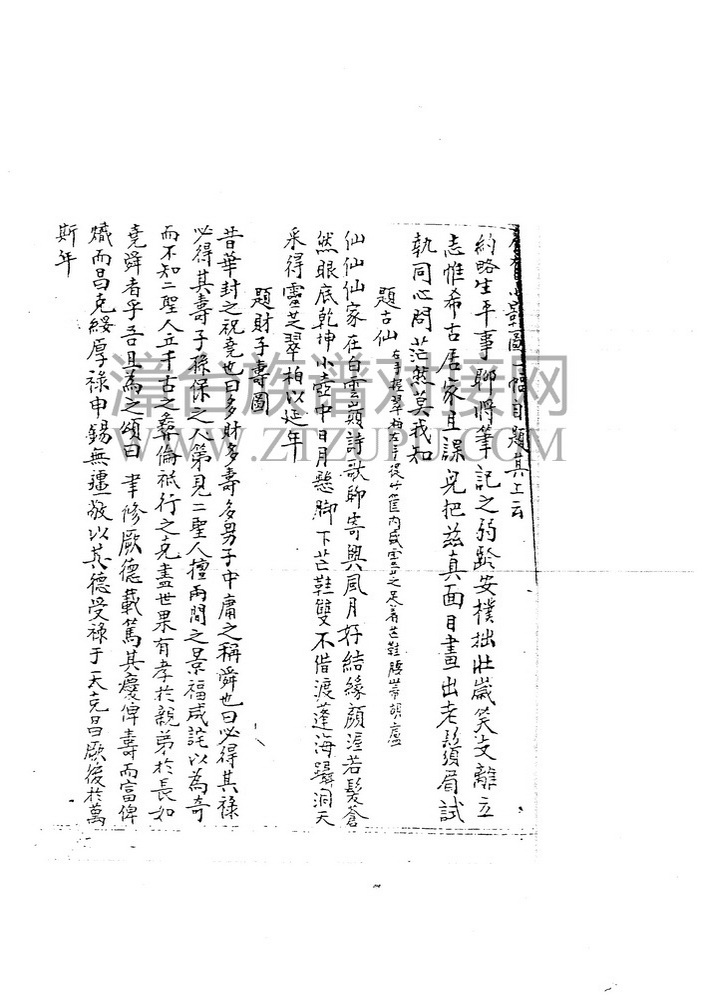 小影圖一幅自題其上云
約略生平事聊將筆記之弱齡安樸拙壯歲笑支離立
志惟希古居家且課兒把茲真面目畫出老鬚眉試
執同心問茫然莫我知
題古仙 右手握翠柏左手從竹筐內盛靈芝足着芒鞋腰帶胡盧
仙仙仙家在白雲巔詩歌聊寄興風月好結緣顏渥若髮蒼
然眼底乾坤小壺中日月懸脚下芒鞋雙不借渡蓬海躡洞天
采得靈芝翠柏以延年
題財子壽圖
昔華封之祝堯也曰多財多壽多男子中庸之稱舜也曰必得其祿
必得其壽子孫保之人第見二聖人擅兩間之景福咸詫以為奇
而不知二聖人立千古之彝倫祗行之克盡世果有孝於親弟於長如
堯舜者乎吾且為之頌曰聿修厥德載篤其慶俾壽而富俾
熾而昌克綏厚祿申錫無疆敬以其德受祿于天克昌厥後於萬
斯年
漳台族谱对接网
WWW.ZTZUPU.COM